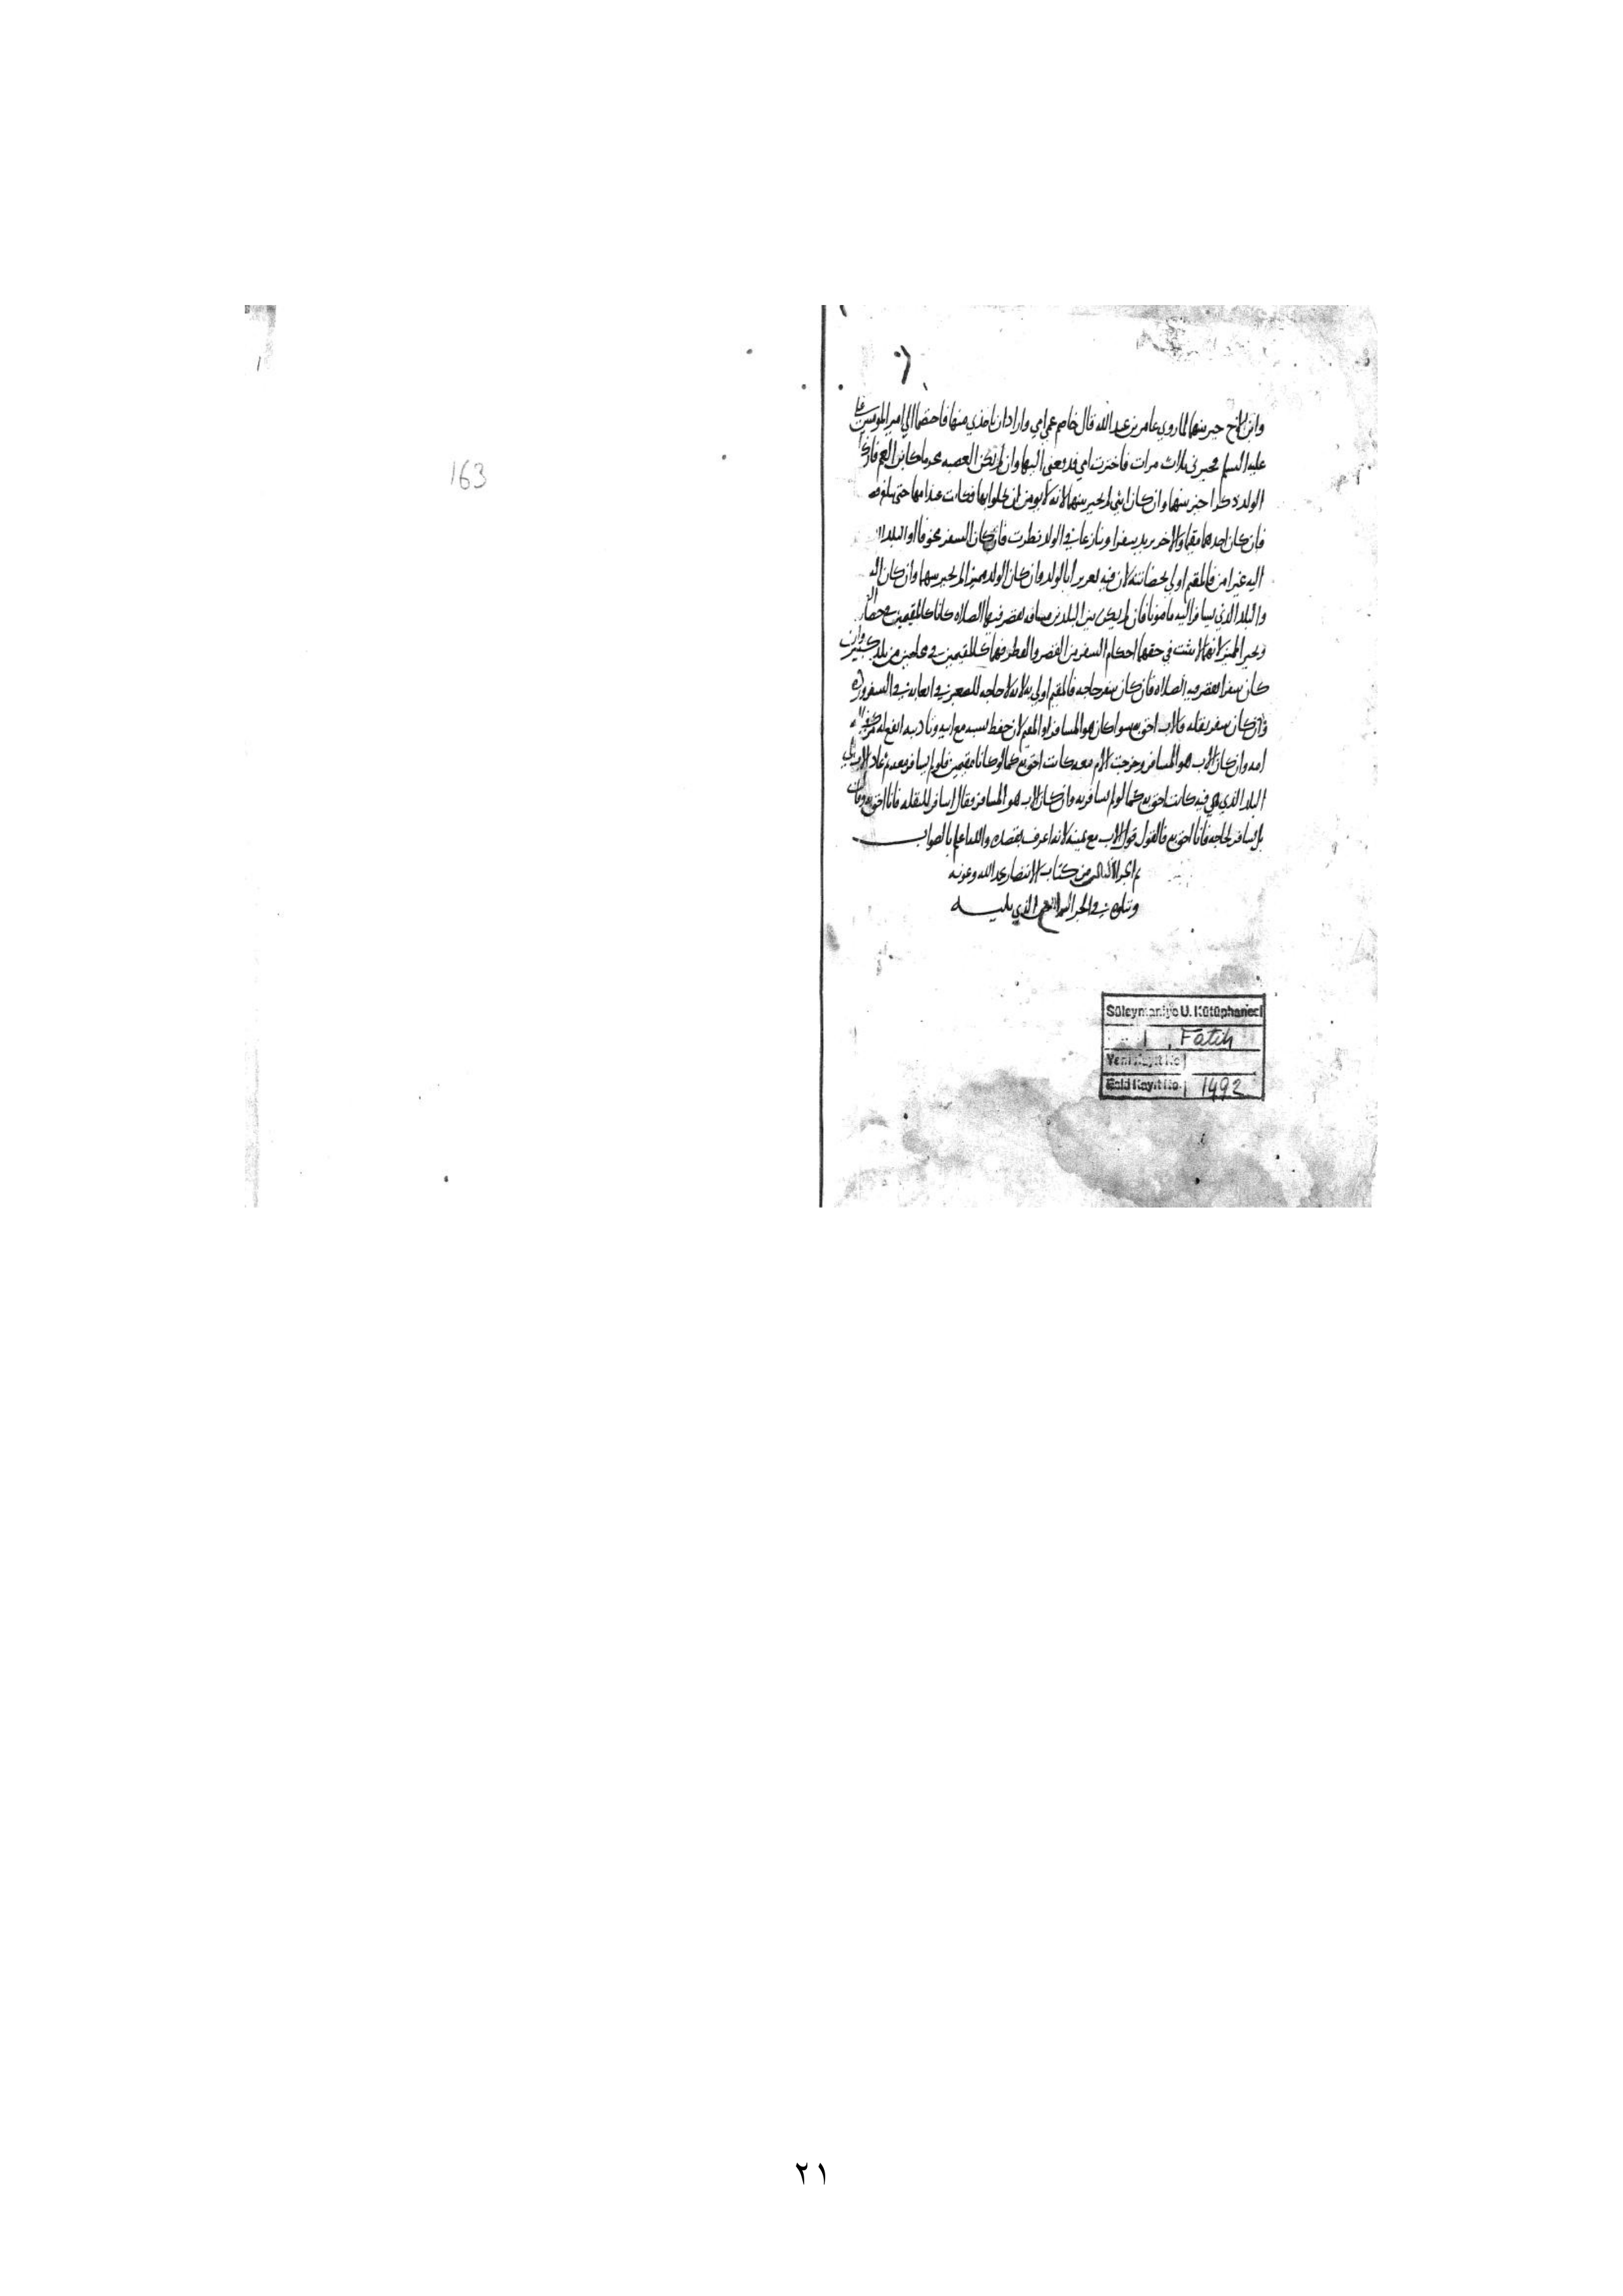 وابن الاخ خير بينهما لما روي عامر بن عبد الله قال خاصم عمي امي واراد ان ياخذني منها فاختصما الى امير المومنين علي
عليه السلم فخيرني ثلاث مرات فاخترت امي فدفعني اليها وان لم يكن العصبه محرما كابن العم فان كان
الولد ذكرا خير بينهما وان كان انثى لم يخير بينهما لانه لا يومن ان يخلوا بها فكانت عند امها حتى تبلغ
فان كان احدهما مقيما والاخر يريد سفرا وتنازعا في الولد نظرت فان كان السفر مخوفا او البلد
اليه غير امن فالمقيم اولى بحضانته لان فيه تغريرا بالولد وان كان الولد مميزا لم يخير بينهما وان كان
والبلد الذي يسافر اليه مامونا فان لم يكن بين البلدين مسافه تقصر فيها الصلاه كانا كالمقيمين في
وتخير المميز لانهما لا يثبت في حقهما احكام السفر من القصر والفطر فهما كالمقيمين في محلتين من بلد كبير وان
كان سفرا تقصر فيه الصلاه فان كان سفر حاجه فالمقيم اولى به لانه لا حاجه للصغير في اتعابه في السفر ورده
وان كان سفر نقله فالاب احق به سوا كان هو المسافر او المقيم لان حفظ نسبه مع ابيه وتاديبه انفع له من
امه وان كان الاب هو المسافر وخرجت الام معه كانت احق به كما لو كانا مقيمين فلو لم يسافر معه ثم عاد الاب الى
البلد الذي هي فيه كانت احق به كما لو لم يسافر به وان كان الاب هو المسافر فقال اسافر للنقله فانا احق به وقالت
بل تسافر لحاجه فانا احق به فالقول قول الاب مع يمينه لانه اعرف بقصده والله اعلم بالصواب
تم الجز الثالث من كتاب الانتصار بحمد الله وعونه
ويتلوه في الجز الرابع الذي يليه
163
Süleymaniye U. Kütüphanesi
Fatih
Yeni Kayıt No
Eski Kayıt No. 1492
٢١